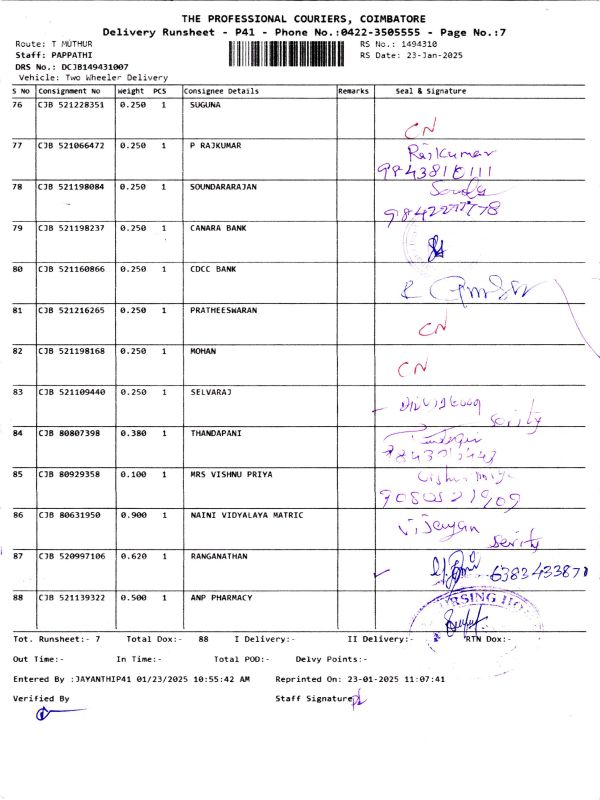 THE PROFESSIONAL COURIERS, COIMBATORE
Delivery Runsheet - P41 - Phone No.:0422-3505555 - Page No.:7
Route: T MUTHUR RS No.: 1494310
Staff: PAPPATHI RS Date: 23-Jan-2025
DRS No.: DCJB149431007
Vehicle: Two Wheeler Delivery
S No Consignment No Weight PCS Consignee Details Remarks Seal & Signature
76 CJB 521228351 0.250 1 SUGUNA
CN
77 CJB 521066472 0.250 1 P RAJKUMAR Rajkumar
9843816111
78 CJB 521198084 0.250 1 SOUNDARARAJAN
79 CJB 521198237 0.250 1 CANARA BANK
80 CJB 521160866 0.250 1 CDCC BANK
81 CJB 521216265 0.250 1 PRATHEESWARAN
CN
82 CJB 521198168 0.250 1 MOHAN
CN
83 CJB 521109440 0.250 1 SELVARAJ
serity
84 CJB 80807398 0.380 1 THANDAPANI
85 CJB 80929358 0.100 1 MRS VISHNU PRIYA
86 CJB 80631950 0.900 1 NAINI VIDYALAYA MATRIC Vijayan
serity
87 CJB 520997106 0.620 1 RANGANATHAN
88 CJB 521139322 0.500 1 ANP PHARMACY
Tot. Runsheet:- 7 Total Dox:- 88 I Delivery:- II Delivery:- RTN Dox:-
Out Time:- In Time:- Total POD:- Delvy Points:-
Entered By :JAYANTHIP41 01/23/2025 10:55:42 AM Reprinted On: 23-01-2025 11:07:41
Verified By Staff Signature